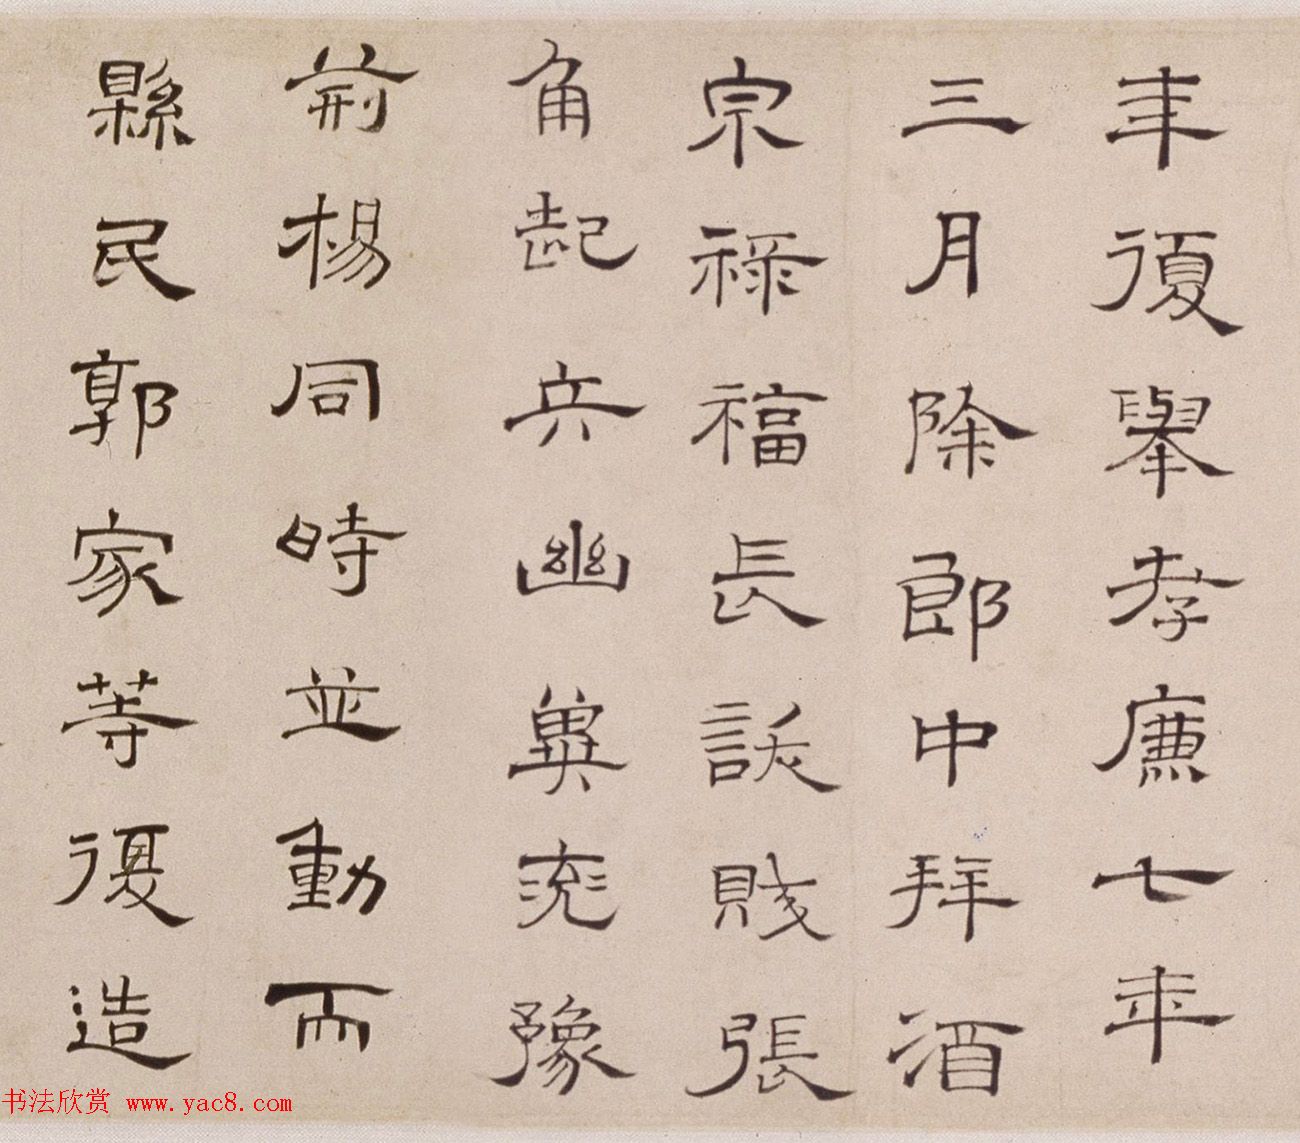 年復舉孝廉七年
三月除郎中拜酒
宗祿福長訞賊張
角起兵幽冀兖豫
荊楊同時並動而
縣民郭家等復造
书法欣赏 www.yac8.com